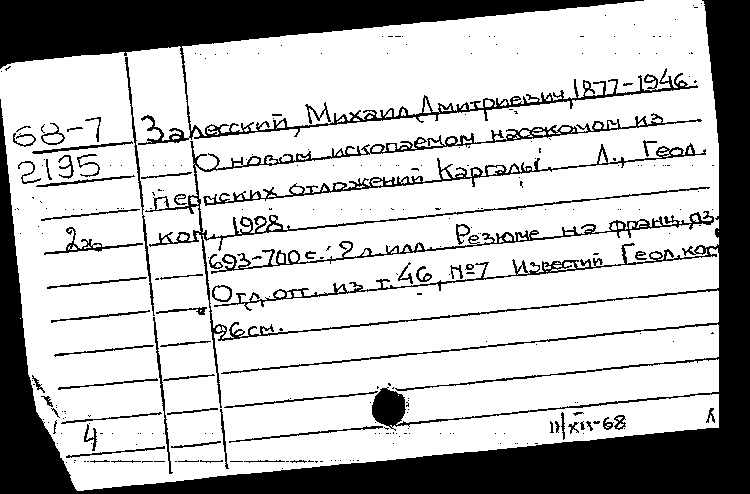 68-7
2195
Залесский, Михаил Дмитриевич, 1877-1946.
О новом ископаемом насекомом из
пермских отложений Каргалы. Л., Геол.
2х
ком., 1928.
693-700 с.; 2 л. илл. Резюме на франц. яз.
Отд. отт. из т. 46, №7 Известий Геол. ком
26 см.
4
11/XII-68